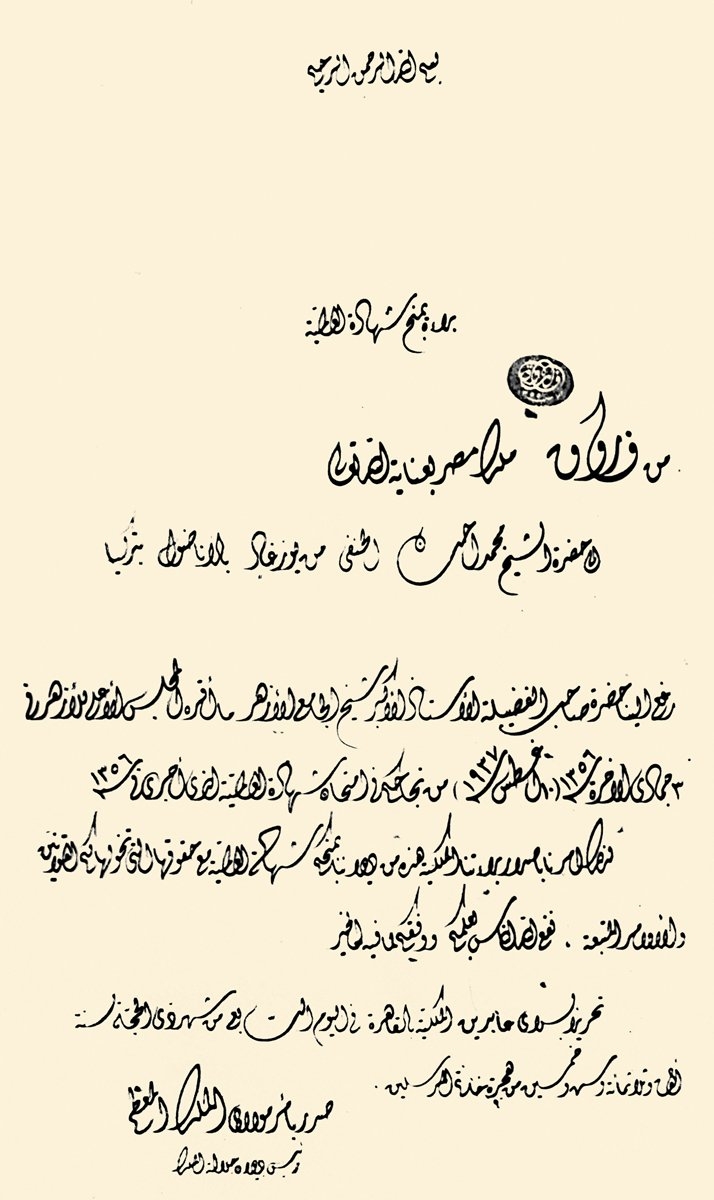 بسم الله الرحمن الرحيم
براءة بمنح شهادة العالمية
من فاروق ملك مصر بعناية الله تعالى
إلى حضرة الشيخ محمد إحسان الحنفى من يوزغاد بالاناضول بتركيا
رفع الينا حضرة صاحب الفضيلة الأستاذ الأكبر شيخ الجامع الأزهر ما أقره المجلس الأعلى للأزهر في
٣ جمادى الآخرة ١٣٥٦ (١٠ أغسطس ١٩٣٧) من نجاحكم في امتحان شهادة العالمية الذى أجرى في ١٣٥٦
لهذا أمرنا باصدار براءتنا الملكية هذه من ديواننا بمنحكم شهادة العالمية مع حقوقها التي تخولها لكم القوانين
والأوامر المتبعة . نفع الله الناس بعلمكم ووفقكم لما فيه الخير
تحريرا بسراى عابدين الملكية بالقاهرة في اليوم السابع من شهر ذى الحجة سنة
ألف وثلاثمائة وست وخمسين من هجرة خاتم المرسلين .
صدر بأمر مولاى الملك المعظم
رئيس ديوان جلالة الملك